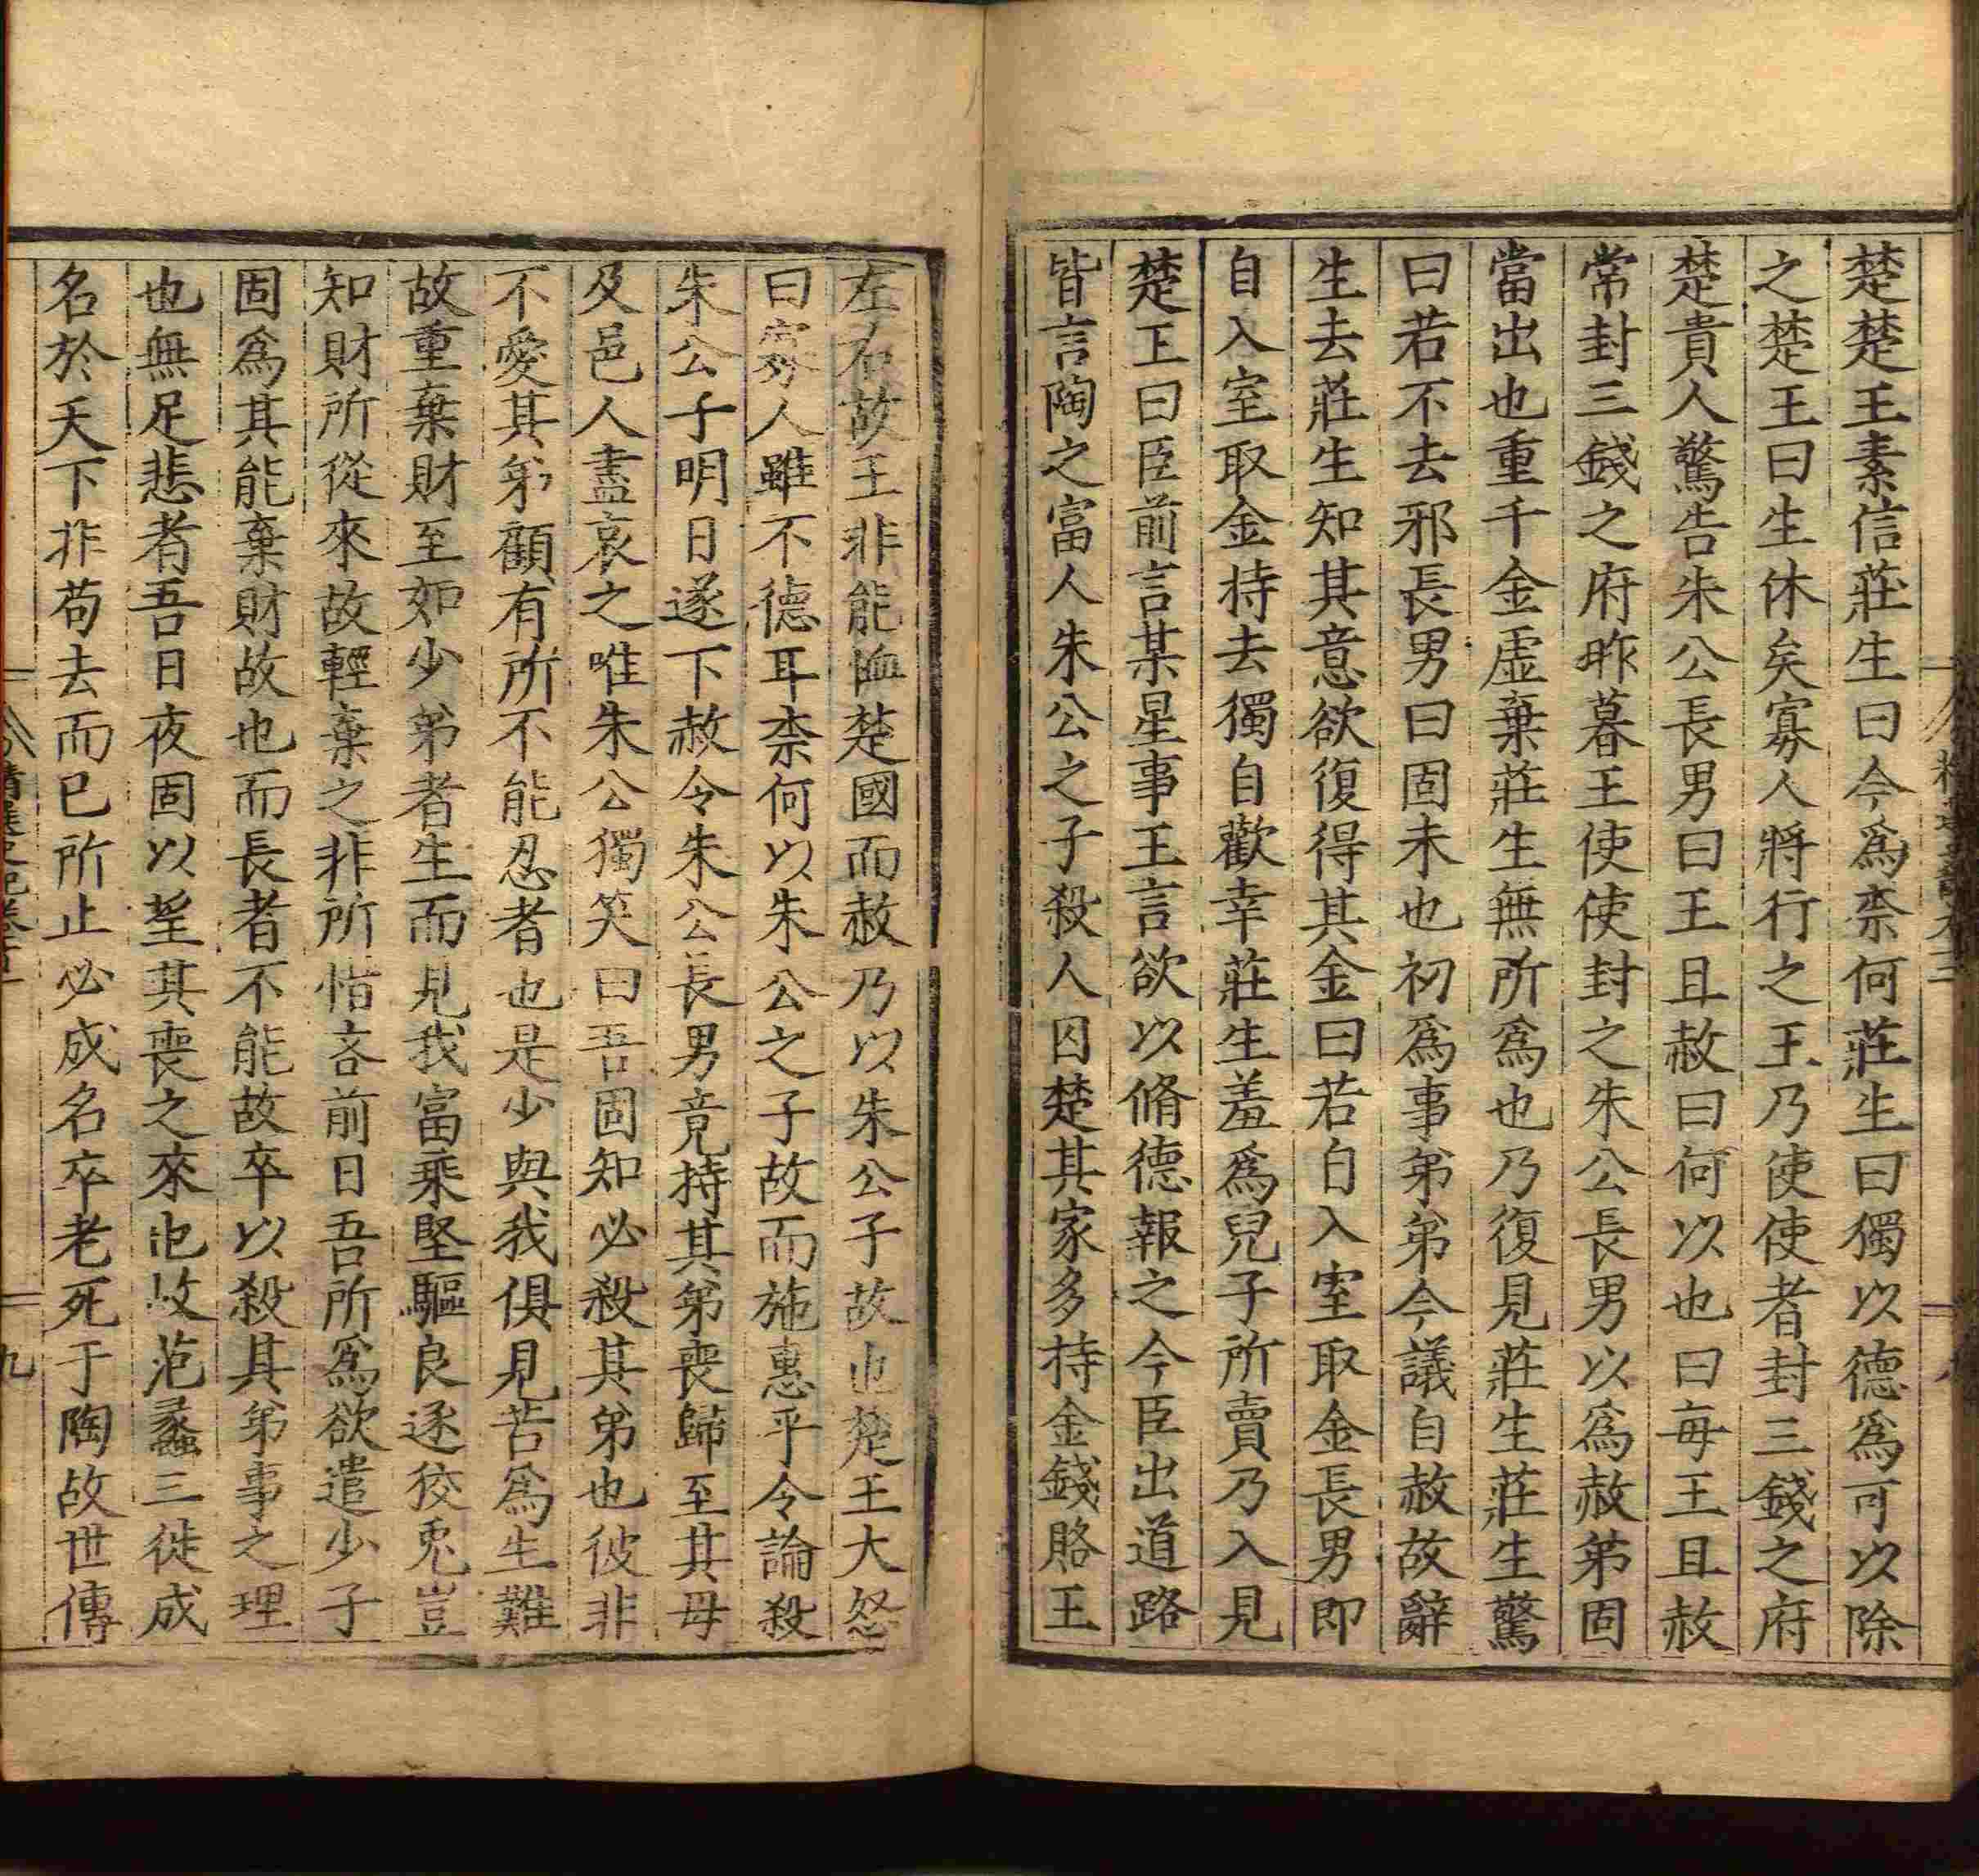 楚楚王素信莊生曰今爲柰何莊生曰獨以德爲可以除
之楚王曰生休矣寡人將行之王乃使使者封三錢之府
楚貴人驚告朱公長男曰王且赦曰何以也曰每王且赦
常封三錢之府昨暮王使使封之朱公長男以爲赦弟固
當出也重千金虛棄莊生無所爲也乃復見莊生莊生驚
曰若不去邪長男曰固未也初爲事弟弟今議自赦故辭
生去莊生知其意欲復得其金曰若自入室取金長男即
自入室取金持去獨自歡幸莊生羞爲兒子所賣乃入見
楚王曰臣前言某星事王言欲以脩德報之今臣出道路
皆言陶之富人朱公之子殺人囚楚其家多持金錢賂王
左右故王非能恤楚國而赦乃以朱公子故也楚王大怒
曰寡人雖不德耳柰何以朱公之子故而施惠乎令論殺
朱公子明日遂下赦令朱公長男竟持其弟喪歸至其母
及邑人盡哀之唯朱公獨笑曰吾固知必殺其弟也彼非
不愛其弟顧有所不能忍者也是少與我俱見苦爲生難
故重棄財至如少弟者生而見我富乘堅驅良逐狡兎豈
知財所從來故輕棄之非所惜吝前日吾所爲欲遣少子
固爲其能棄財故也而長者不能故卒以殺其弟事之理
也無足悲者吾日夜固以望其喪之來也故范蠡三徙成
名於天下非苟去而已所止必成名卒老死于陶故世傳
九